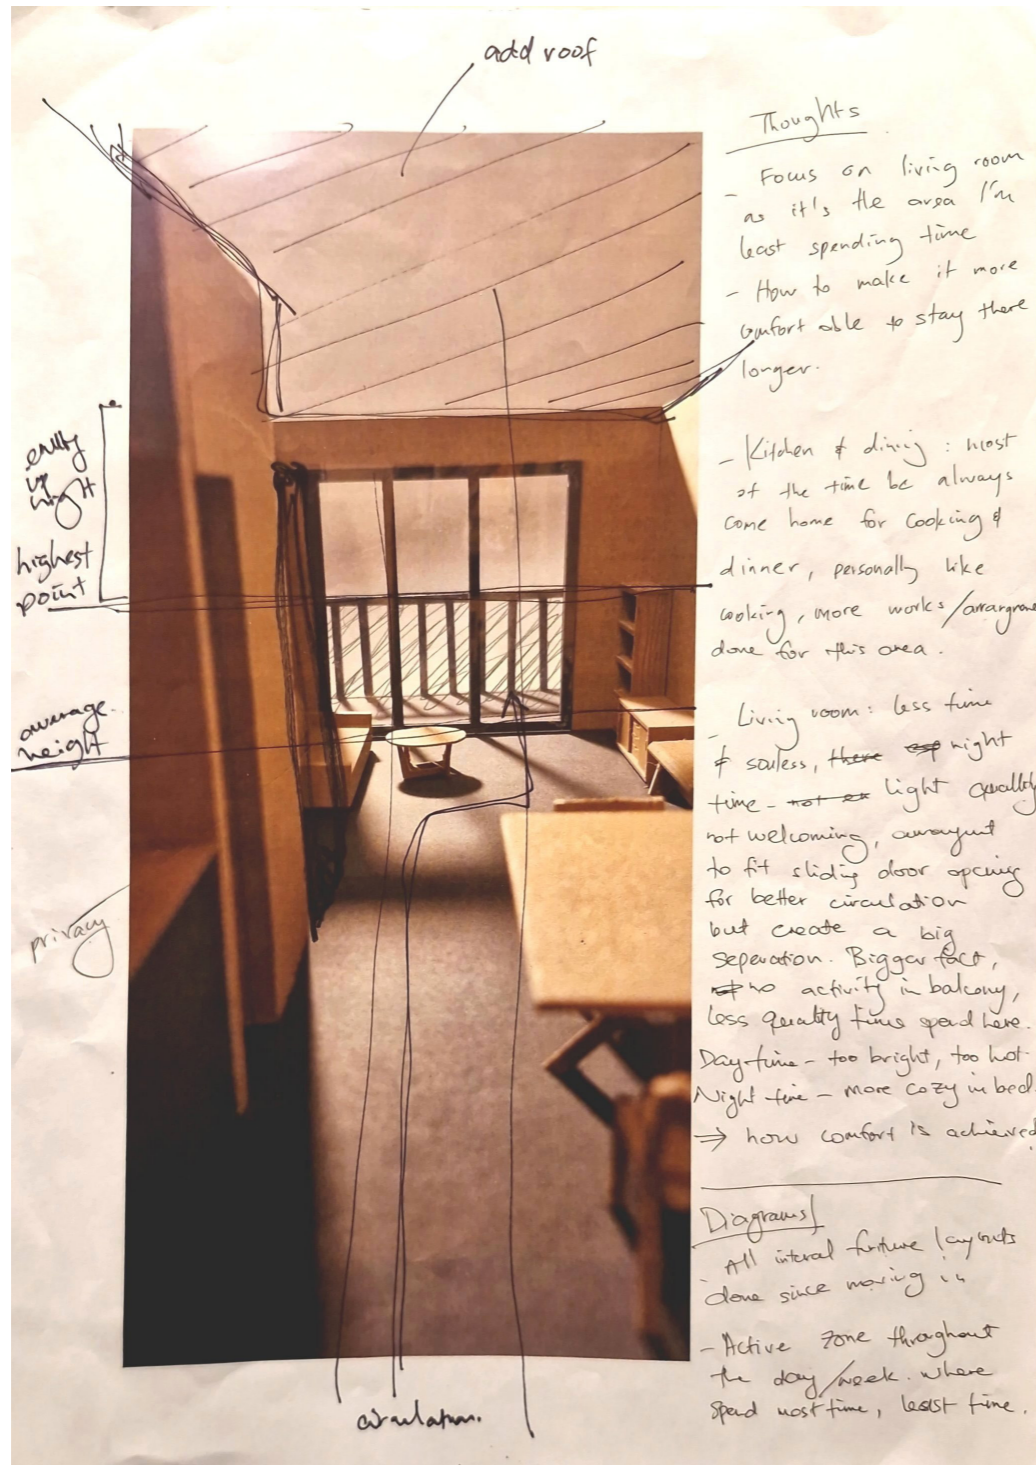 add roof
highest
point
average
height
privacy
circulation.
Thoughts
- Focus on living room
as it's the area I'm
least spending time
- How to make it more
comfortable to stay there
longer.
- Kitchen & dining : most
of the time be always
come home for cooking &
dinner, personally like
cooking, more works/
done for this area.
- Living room: less time
& souless, there esp night
time - light quality
not welcoming,
to fit sliding door opening
for better circulation
but create a big
seperation. Bigger fact,
no activity in balcony,
less quality time spend here.
Day time - too bright, too hot
Night time - more cozy in bed
⇒ how comfort is achieved
Diagrams/
- All layouts
done since moving in
- Active zone throughout
the day/week. where
spend most time, least time.